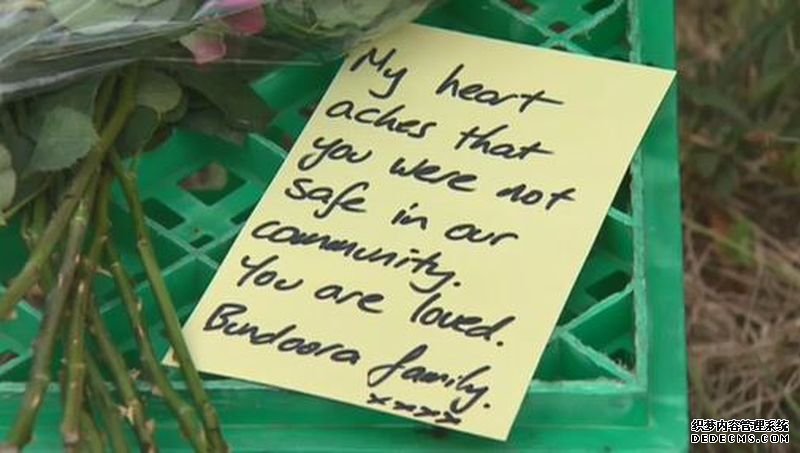 My heart
aches that
you were not
safe in our
community.
You are loved.
Bundoora family.
xxxx
织梦内容管理系统
DEDECMS.COM